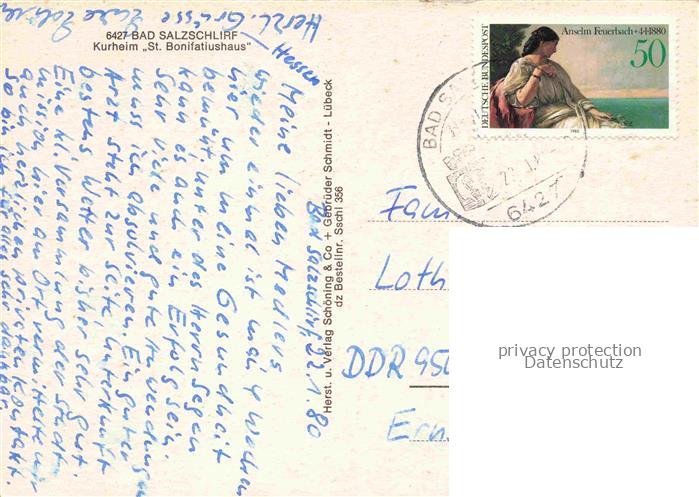 6427 BAD SALZSCHLIRF
Kurheim „St. Bonifatiushaus"
Herst. u. Verlag Schöning & Co + Gebrüder Schmidt - Lübeck
dz Bestellnr. Sschl 356
Anselm Feuerbach +4·1·1880
50
DEUTSCHE BUNDESPOST
1980
BAD SA
6427
Bad Salzschlirf, 22.1.80
Meine lieben Medlers
wieder einmal ist man 4 Wochen
hier um seine Gesundheit
bemüht, unter des Herrn Segen
kann es auch ein Erfolg sein.
Sehr viele und gute Anwendungen
muss ich absolvieren. Ein guter
Arzt steht zur Seite, Unterkunft
bestens, Wetter bisher sehr gut.
Eine kl. Versammlung der Stadt-
mission hier am Ort vermittelt
auch herzlichen privaten Kontakt.
So bin ich für alles sehr dankbar.
Herzl. Grüsse
Fam
Loth
DDR 950
Ern
privacy protection
Datenschutz